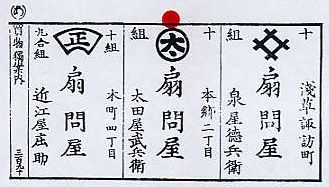 十組
扇問屋
浅草諏訪町
泉屋徳兵衛
十組
太
扇問屋
本郷二丁目
太田屋武兵衛
十組
正
扇問屋
本町四丁目
九合組
近江屋庄助
買物独案内
三百九十